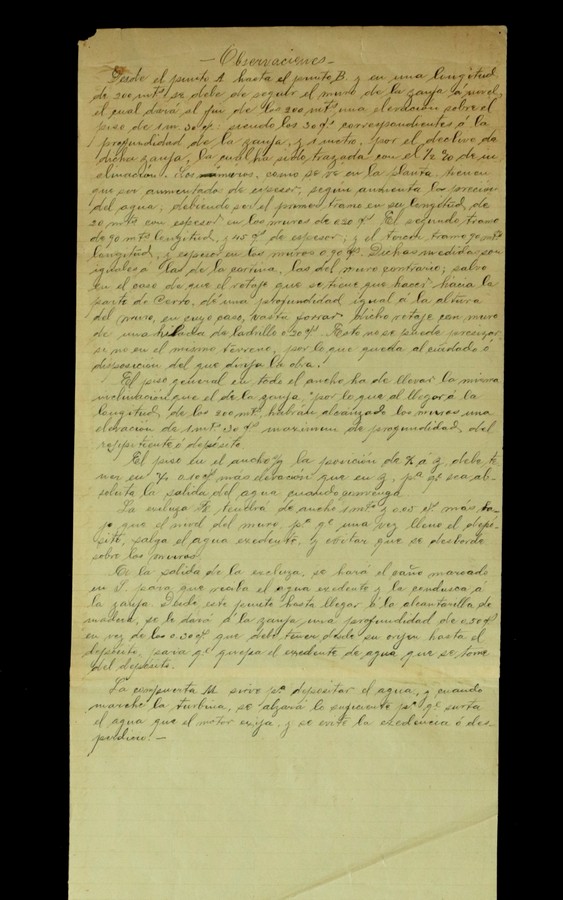 — Observaciones —
Desde el punto A hasta el punto B. y en una longitud
de 200 mtˢ se debe de seguir el muro de la zanja á nivel,
el cual dará al fin de los 200 mtˢ una elevación sobre el
piso de 1 m. 30 qˢ siendo los 30 qˢ correspondientes á la
profundidad de la zanja, y 1 metro, por el declive de
dicha zanja, la cual ha sido trazada con el ½ % de in
clinación. Los muros, como se vé en la planta, tienen
que ser aumentados de espesor, segun aumenta la presion
del agua, debiendo ser el primer tramo en su longitud, de
20 mtˢ con espesor en los muros de 0.30 qˢ El segundo tramo
de 90 mtˢ longitud, y 45 qˢ de espesor; y el tercer tramo 90 mtˢ
longitud, y espesor en los muros 0.90 qˢ. Dichas medidas son
iguales á las de la cortina, las del muro contrario; salvo
en el caso de que el rebaje que se tiene que hacer hácia la
parte de Cerro, dé una profundidad igual á la altura
del muro, en cuyo caso, basta forrar dicho rebaje con muro
de una hilada de ladrillo 0.30 qˢ. Esto no se puede precisar
si no en el mismo terreno, por lo que queda al cuidado ó
disposicion del que dirija la obra.
El piso general en todo el ancho ha de llevar la misma
inclinación que el de la zanja, por lo que al llegar á la
longitud, de los 200 mtˢ habrán alcanzado los muros una
elevación de 1 mtˢ 30 qˢ maximun de profundidad, del
recipiente ó depósito.
El piso en el ancho y la posición de Y á Z, debe te
ner en Y, 0.10 qˢ más elevación que en Z, pª qᵉ sea ab-
soluta la salida del agua cuando convenga.
La excluza tendrá de ancho 1 mtˢ y 0.05 qˢ más ba-
jo que el nivel del muro, pª qᵉ una vez lleno el depó-
sito, salga el agua exedente, y evitar que se desborde
sobre los muros.
A la salida de la excluza, se hará el caño marcado
en S. para que reciba el agua exedente y la condusca á
la zanja. Desde este punto hasta llegar á la alcantarilla de
madera, se le dará á la zanja una profundidad de 0.50 qˢ
en vez de los 0.30 qˢ que debe tener desde su orijen hasta el
depósito, para qᵉ quepa el exedente de agua que se tome
del depósito.
La compuerta M sirve pª depositar el agua, y cuando
marche la turbina, se alzará lo suficiente pª qᵉ surta
el agua que el motor exija, y se evite la exedencia ó des-
perdicio. —